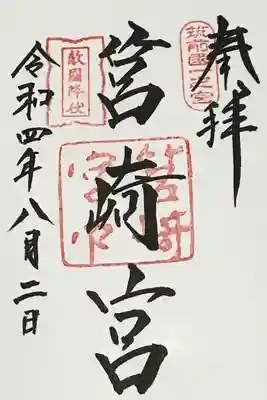 奉拝
筑前國一之宮
筥崎宮
敵國降伏
筥崎宮印
令和四年八月二日